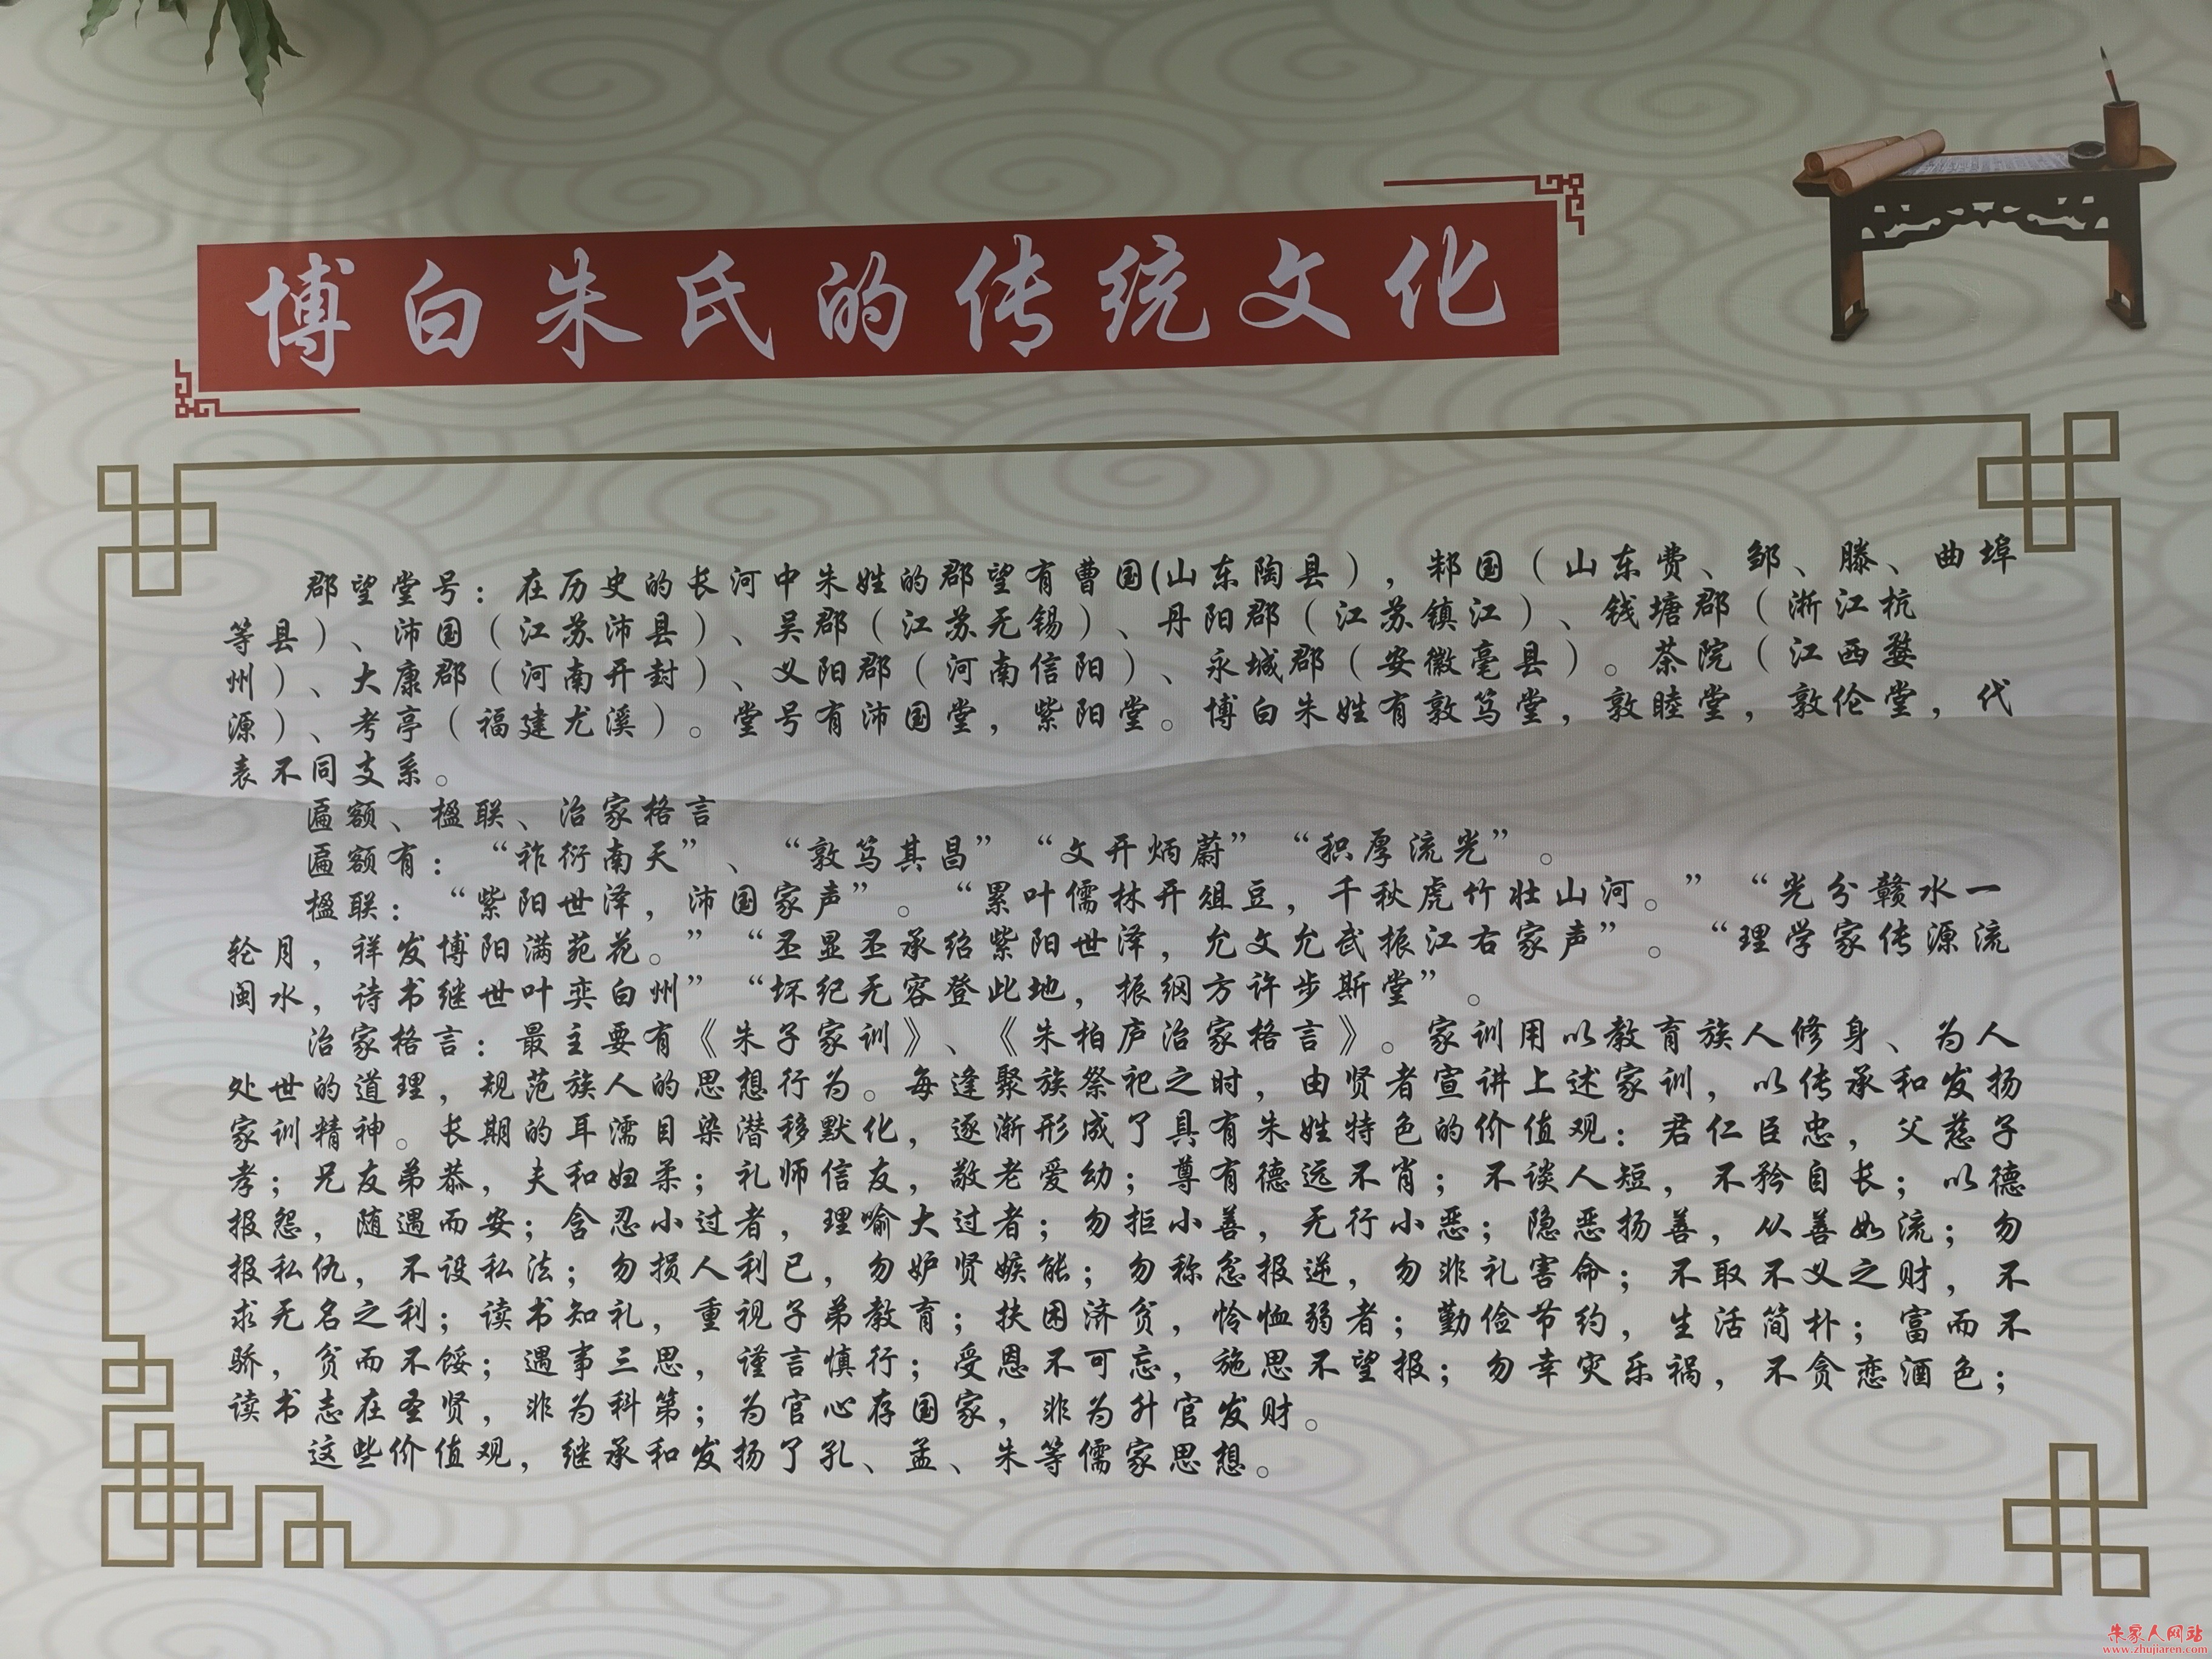 博白朱氏的传统文化
郡望堂号：在历史的长河中朱姓的郡望有曹国(山东陶县），邾国（山东费、邹、滕、曲埠
等县）、沛国（江苏沛县）、吴郡（江苏无锡）、丹阳郡（江苏镇江）、钱塘郡（浙江杭
州）、大康郡（河南开封）、义阳郡（河南信阳）、永城郡（安徽亳县）。茶院（江西婺
源）、考亭（福建尤溪）。堂号有沛国堂，紫阳堂。博白朱姓有敦笃堂，敦睦堂，敦伦堂，代
表不同支系。
匾额、楹联、治家格言
匾额有：“祚衍南天”、“敦笃其昌”“文开炳蔚”“积厚流光”。
楹联：“紫阳世泽，沛国家声”。“累叶儒林开俎豆，千秋虎竹壮山河。”“光分赣水一
轮月，祥发博阳满苑花。”“丕显丕承绍紫阳世泽，允文允武振江右家声”。“理学家传源流
闽水，诗书继世叶奕白州”“坏纪无容登此地，振纲方许步斯堂”。
治家格言：最主要有《朱子家训》、《朱柏庐治家格言》。家训用以教育族人修身、为人
处世的道理，规范族人的思想行为。每逢聚族祭祀之时，由贤者宣讲上述家训，以传承和发扬
家训精神。长期的耳濡目染潜移默化，逐渐形成了具有朱姓特色的价值观：君仁臣忠，父慈子
孝；兄友弟恭，夫和妇柔；礼师信友，敬老爱幼；尊有德远不肖；不谈人短，不矜自长；以德
报怨，随遇而安；含忍小过者，理喻大过者；勿拒小善，无行小恶；隐恶扬善，从善如流；勿
报私仇，不设私法；勿损人利已，勿妒贤嫉能；勿称忿报逆，勿非礼害命；不取不义之财，不
求无名之利；读书知礼，重视子弟教育；扶困济贫，怜恤弱者；勤俭节约，生活简朴；富而不
骄，贫而不馁；遇事三思，谨言慎行；受恩不可忘，施恩不望报；勿幸灾乐祸，不贪恋酒色；
读书志在圣贤，非为科第；为官心存国家，非为升官发财。
这些价值观，继承和发扬了孔、孟、朱等儒家思想。
朱家人网站
www.zhujiaren.com